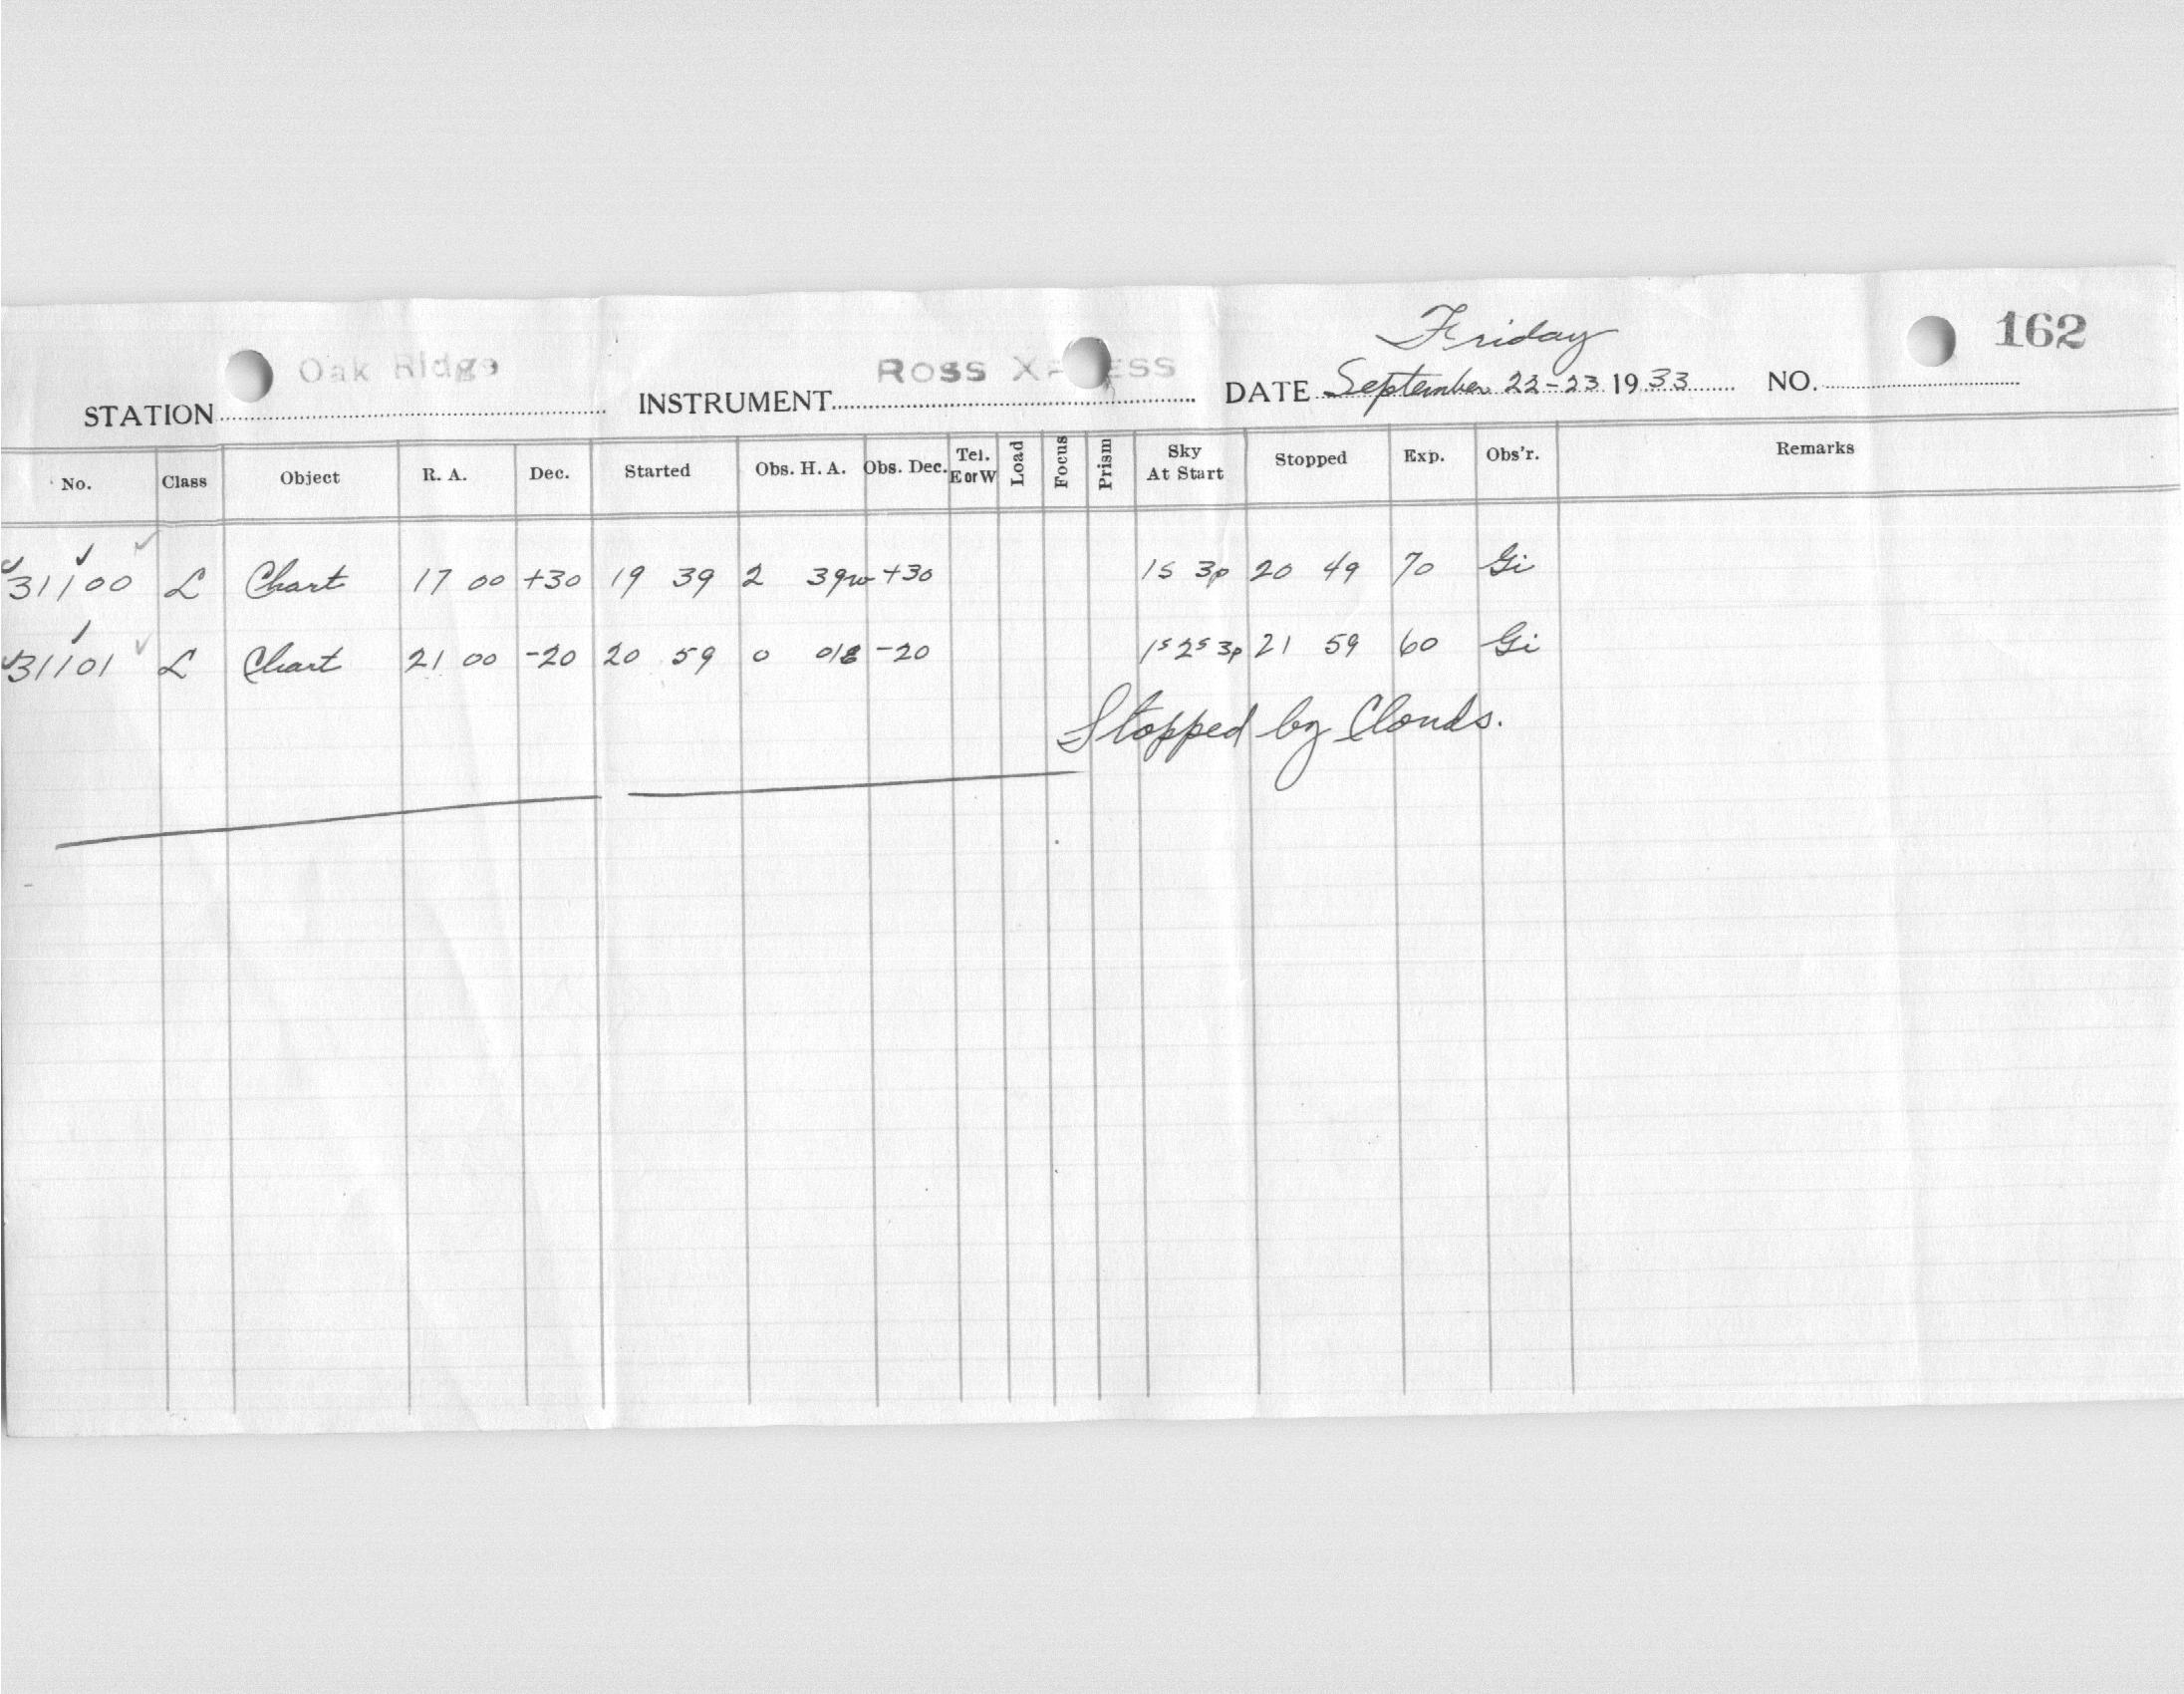 Friday
162
Oak Ridge Ross XPRESS
STATION INSTRUMENT DATE September 22-23 1933 NO.
No. Class Object R. A. Dec. Started Obs. H. A. Obs. Dec. Tel. E or W Load Focus Prism Sky At Start Stopped Exp. Obs'r. Remarks
31100 L Chart 17 00 +30 19 39 2 39w +30 1S 3p 20 49 70 Gi
31101 L Chart 21 00 -20 20 59 0 -20 1S 2S 3p 21 59 60 Gi
Stopped by Clouds.